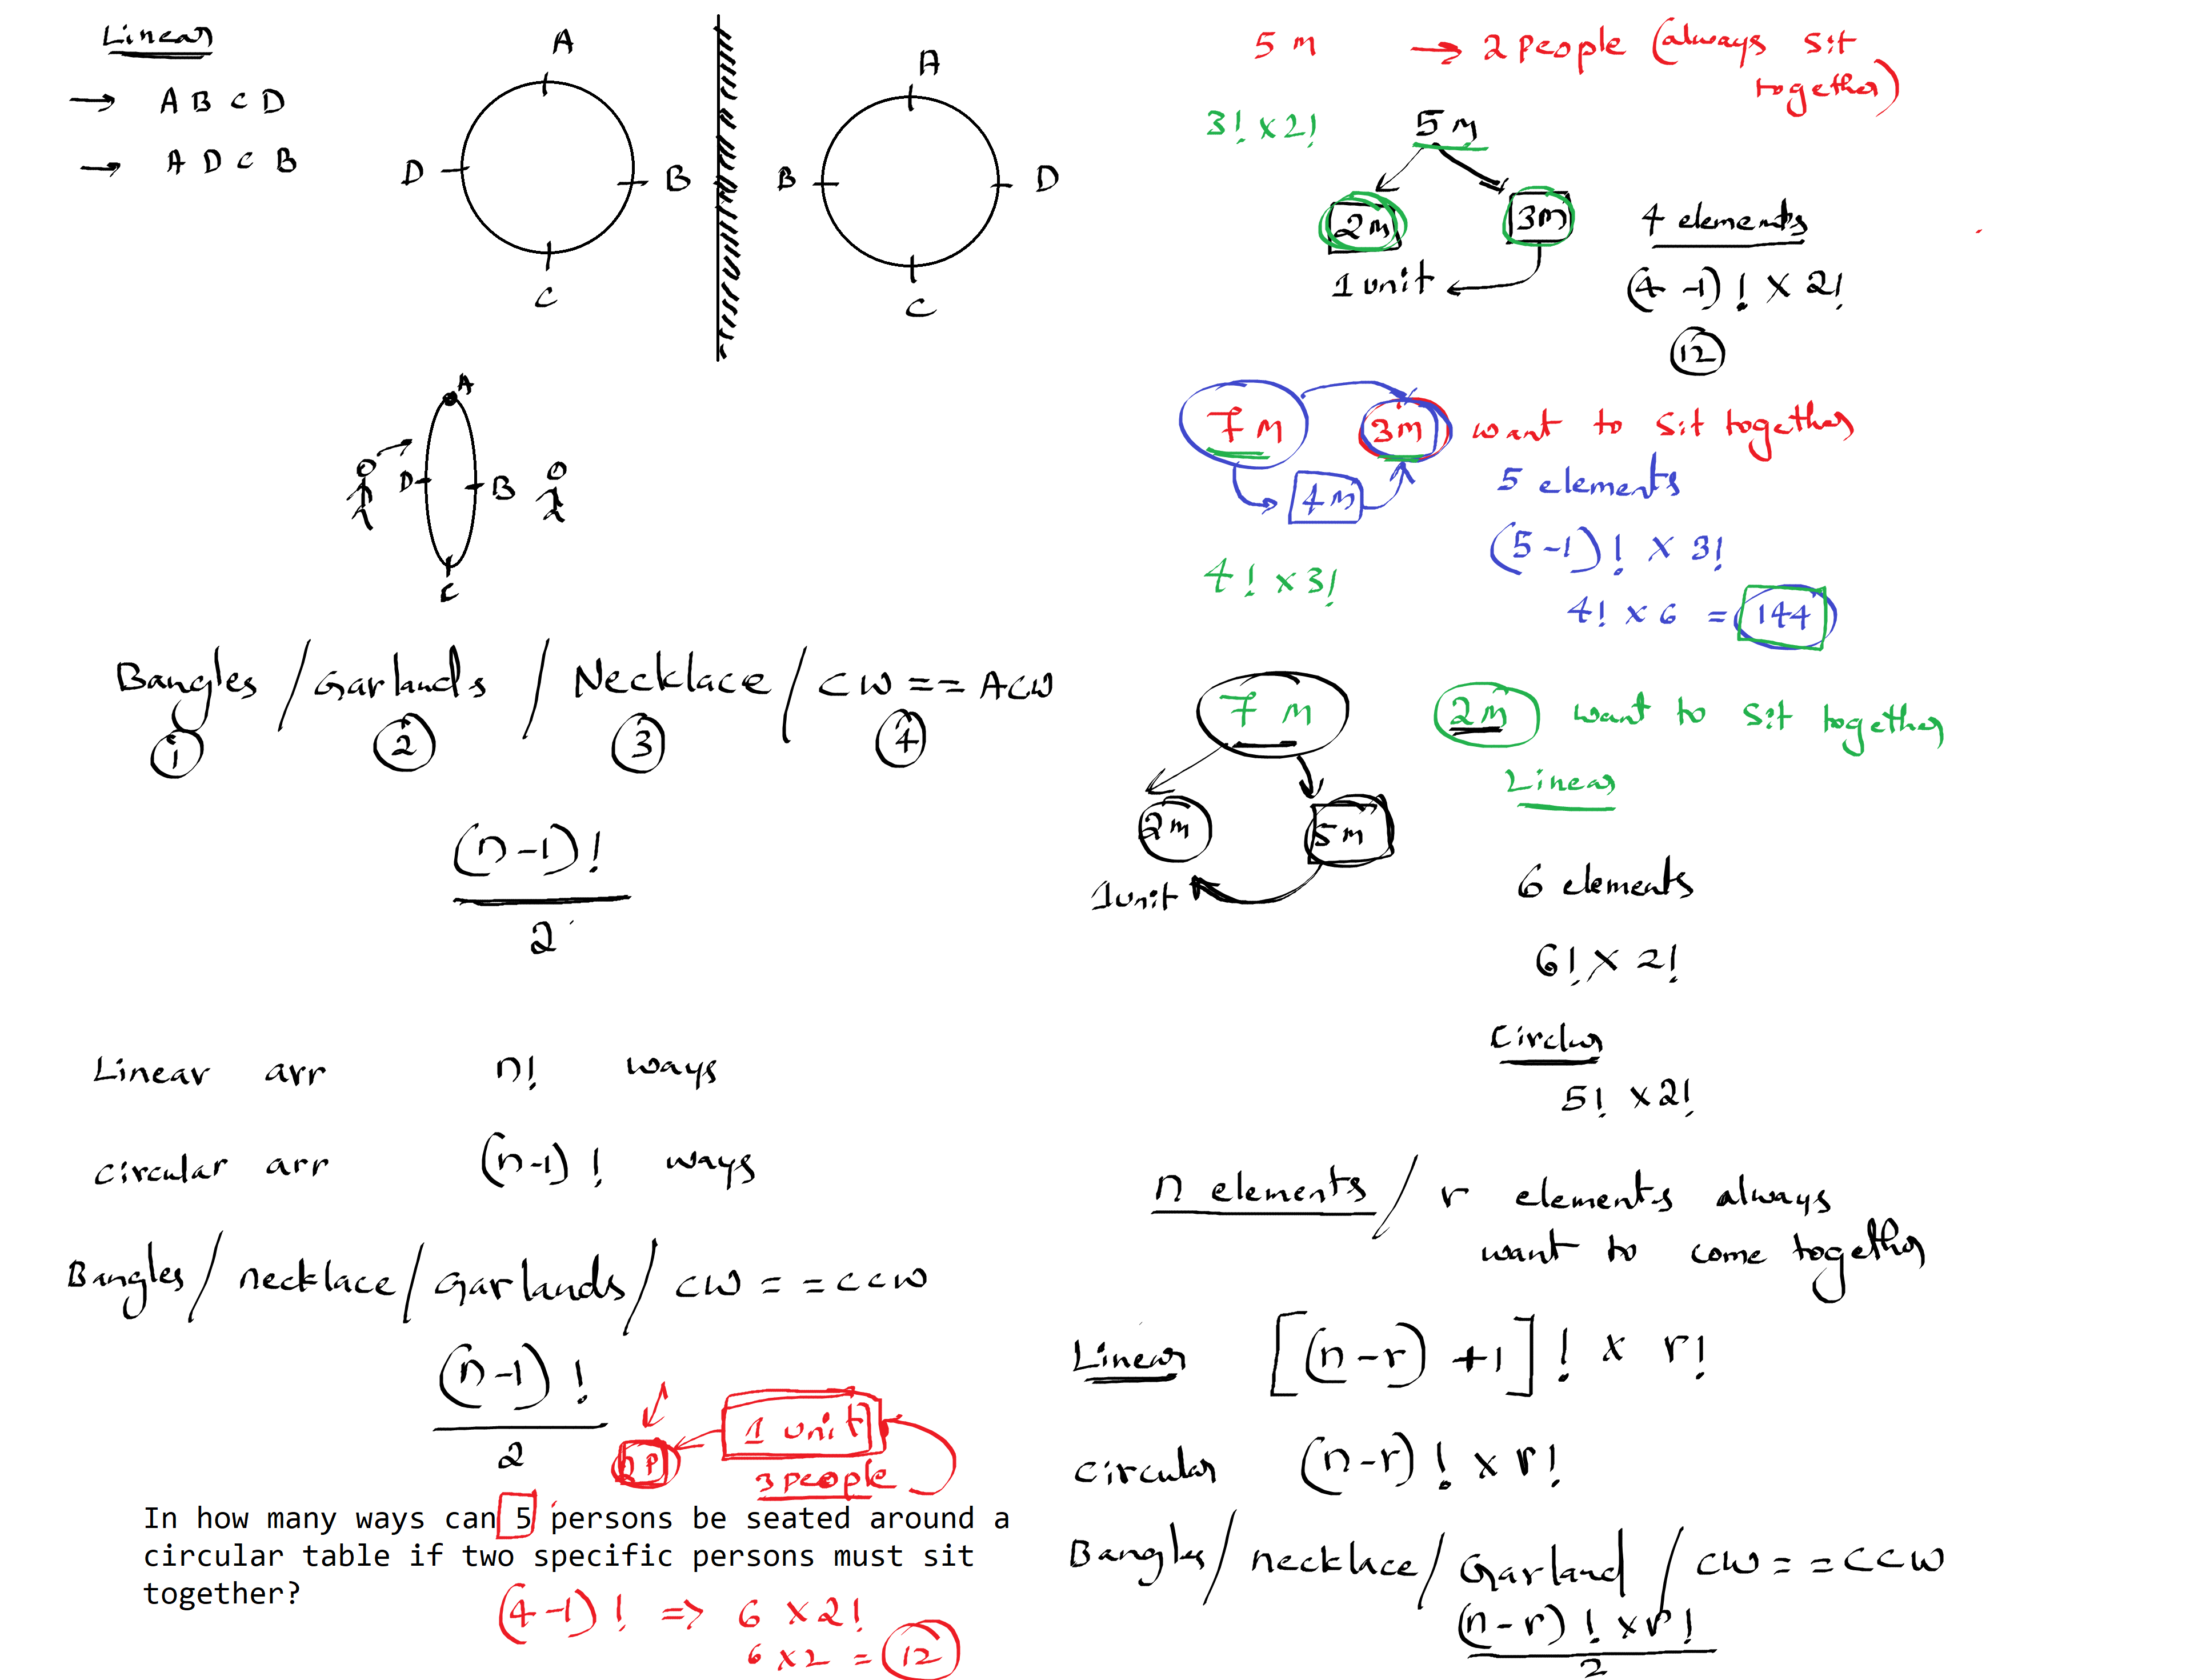 Linear
→ A B C D
→ A D C B
A
D B
C
A
B D
C
A
D B
C
Bangles / Garlands / Necklace / CW == ACW
1 2 3 4
(n-1)!
2
Linear arr n! ways
circular arr (n-1)! ways
Bangles / necklace / Garlands / CW = = CCW
(n-1)!
2
1 unit
3 people
In how many ways can 5 persons be seated around a
circular table if two specific persons must sit
together?
(4-1)! => 6 x 2!
6 x 2 = 12
5 M → 2 people (always sit
together)
3! x 2!
5 M
2 M 3M
1 unit
4 elements
(4-1)! x 2!
12
7 M 3M want to sit together
4 M
5 elements
(5-1)! x 3!
4! x 3!
4! x 6 = 144
7 M 2M want to sit together
Linear
2M 5M
1 unit
6 elements
6! x 2!
Circular
5! x 2!
n elements / r elements always
want to come together
Linear [(n-r) +1]! x r!
circular (n-r)! x r!
Bangles / necklace / Garland / CW = = CCW
(n-r)! x r!
2